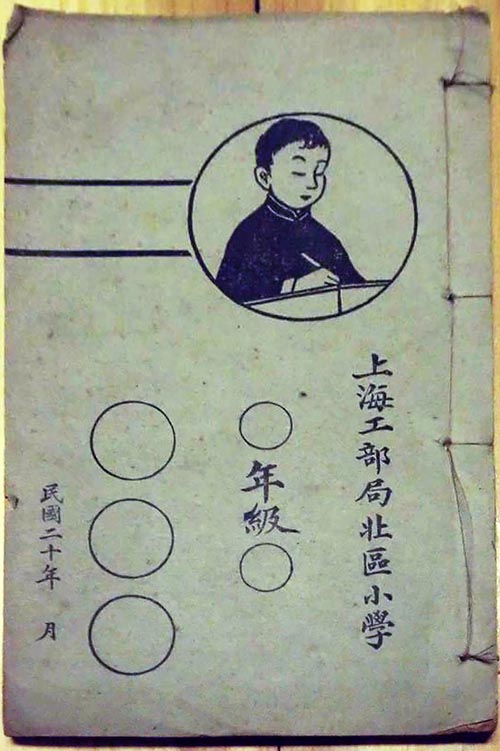 上海工部局北區小學
年級
民國二十年 月